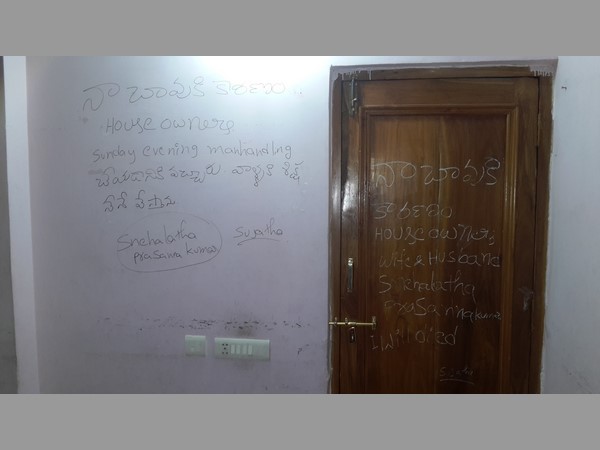 నా చావుకి కారణం..
House owners
Sunday evening manhandling
చేయడానికి వచ్చారు వాళ్ళకి శిక్ష
Snehalatha
prasanna kumar
Sujatha
నా చావుకి
కారణం
House owners
wife & Husband
Snehalatha
I will died